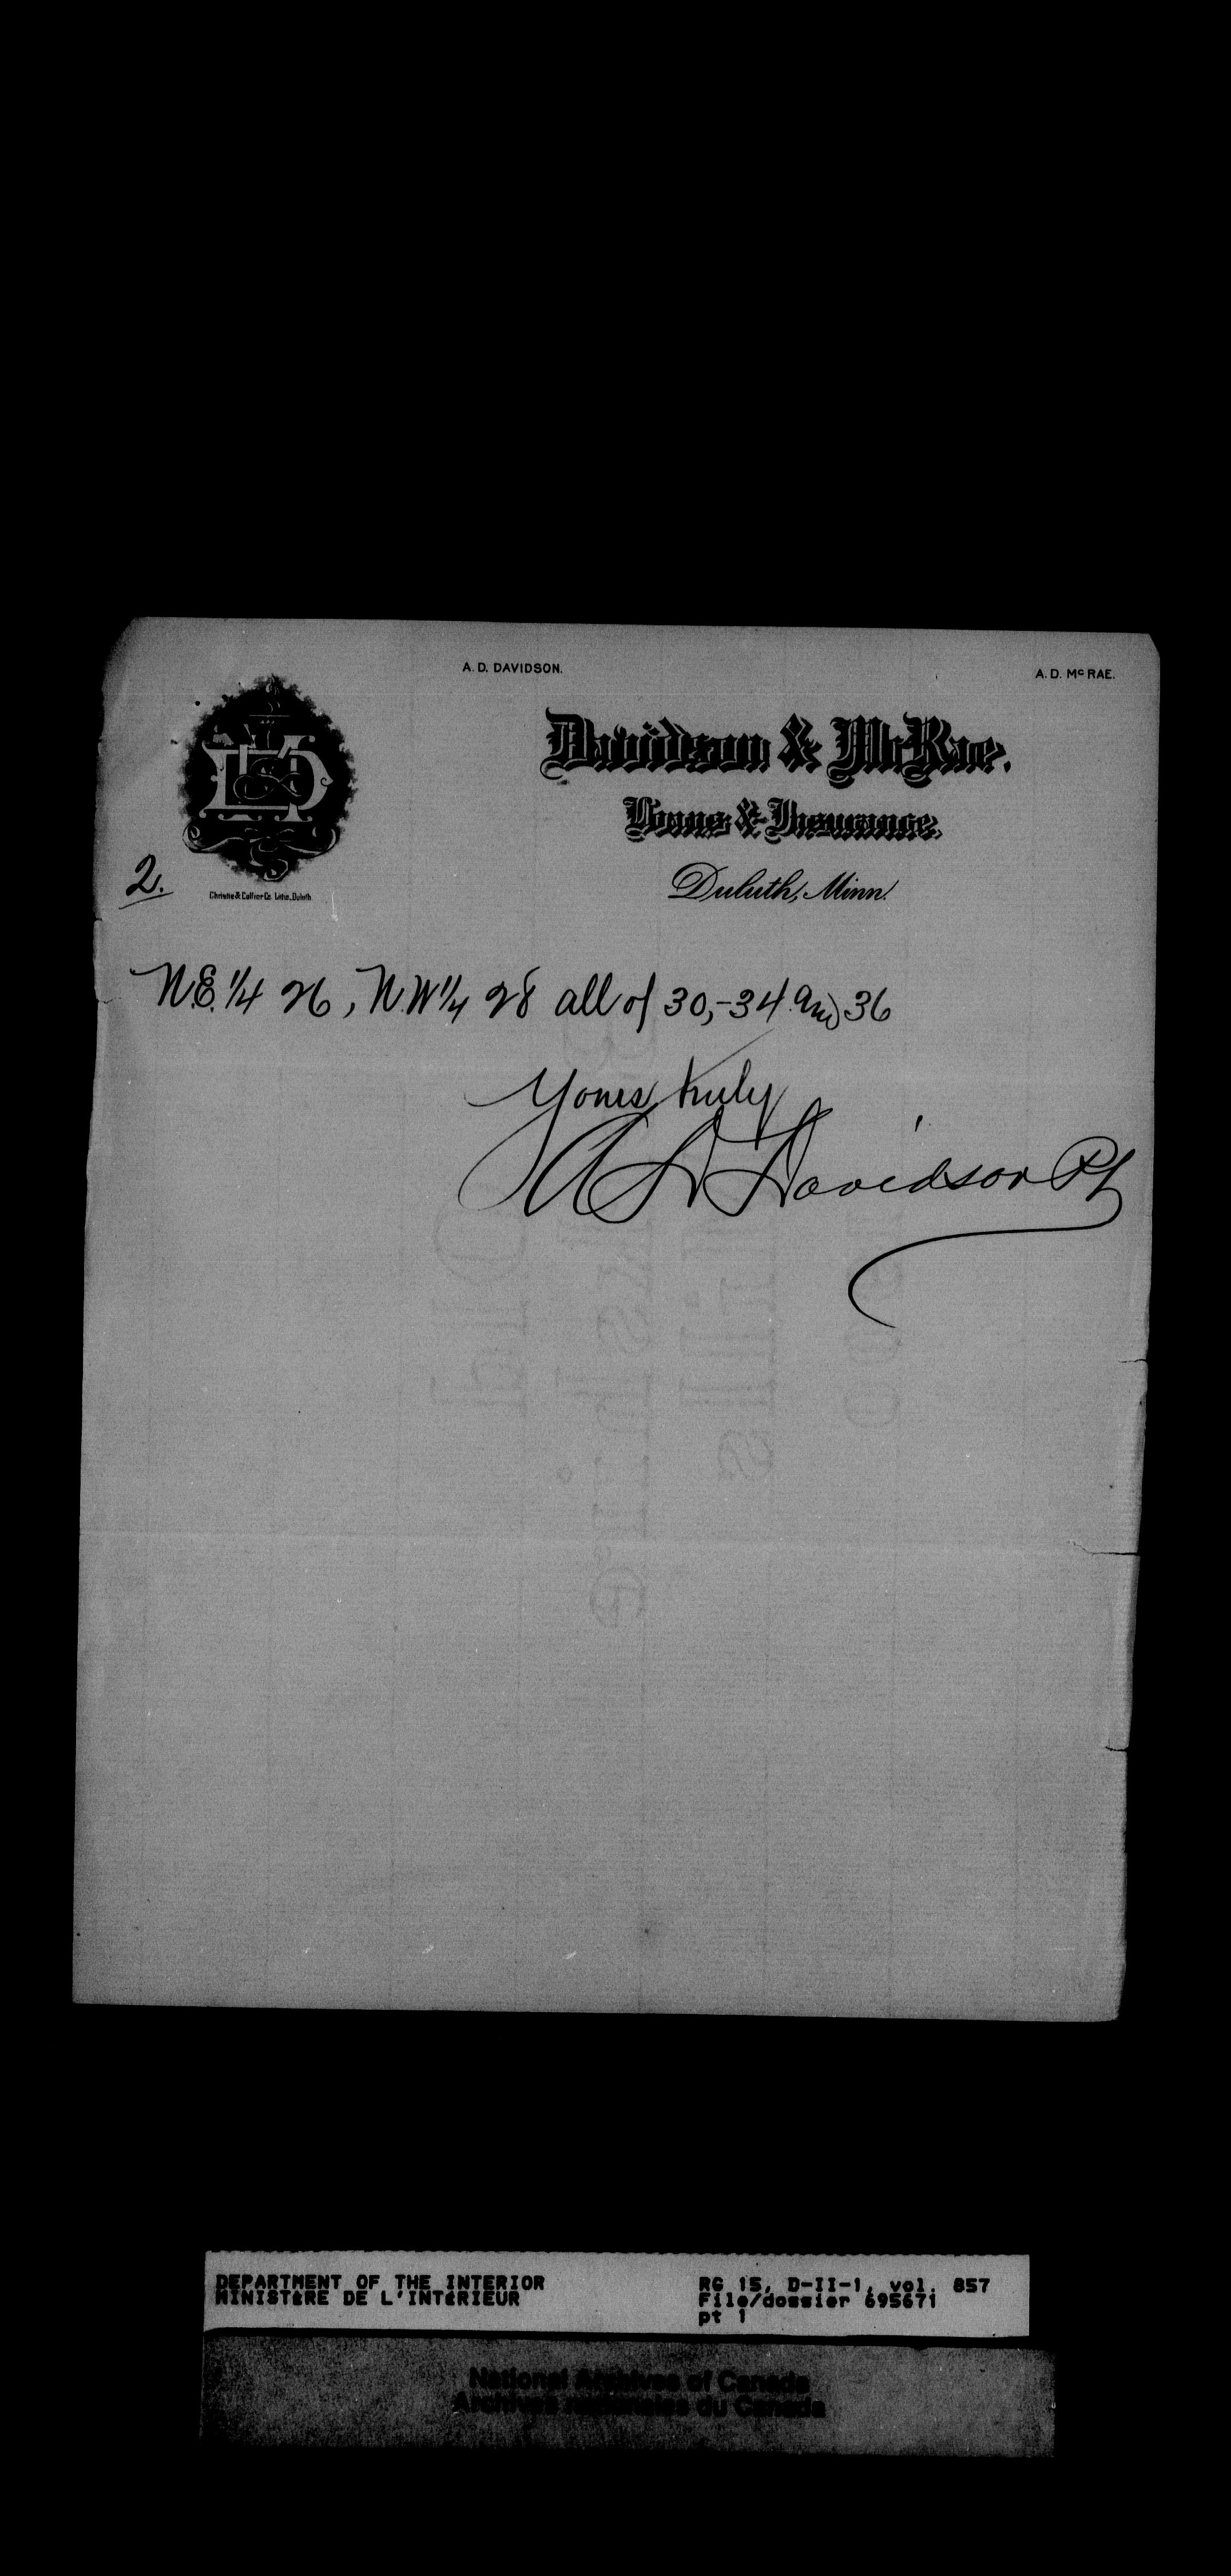 A. D. DAVIDSON.
A. D. McRAE.
Davidson & McRae.
Loans & Insurance.
Duluth, Minn.
2.
Christie & Collier Co. Litho, Duluth
N.E. 1/4 26, N.W 1/4 28 all of 30,-34 and 36
Yours truly
A D Davidson Pt
DEPARTMENT OF THE INTERIOR
MINISTÈRE DE L'INTÉRIEUR
RG 15, D-II-1, vol. 857
File/dossier 695671
pt 1
National Archives of Canada
Archives nationales du Canada